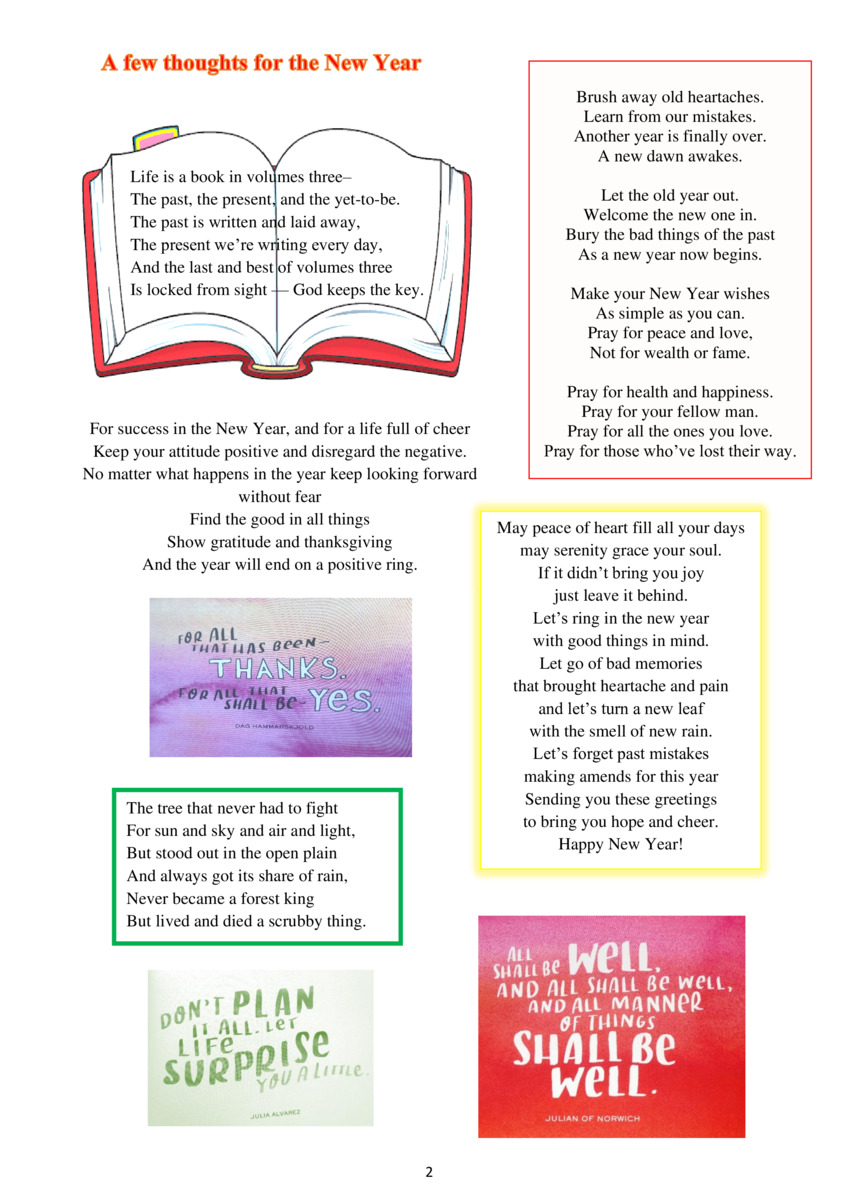 A few thoughts for the New Year
Life is a book in volumes three–
The past, the present, and the yet-to-be.
The past is written and laid away,
The present we're writing every day,
And the last and best of volumes three
Is locked from sight — God keeps the key.
For success in the New Year, and for a life full of cheer
Keep your attitude positive and disregard the negative.
No matter what happens in the year keep looking forward
without fear
Find the good in all things
Show gratitude and thanksgiving
And the year will end on a positive ring.
FOR ALL
THAT HAS BEEN–
THANKS.
FOR ALL THAT
SHALL BE– YES.
DAG HAMMARSKJOLD
The tree that never had to fight
For sun and sky and air and light,
But stood out in the open plain
And always got its share of rain,
Never became a forest king
But lived and died a scrubby thing.
DON'T PLAN
IT ALL. LET
LIFE
SURPRISE
YOU A LITTLE.
JULIA ALVAREZ
Brush away old heartaches.
Learn from our mistakes.
Another year is finally over.
A new dawn awakes.
Let the old year out.
Welcome the new one in.
Bury the bad things of the past
As a new year now begins.
Make your New Year wishes
As simple as you can.
Pray for peace and love,
Not for wealth or fame.
Pray for health and happiness.
Pray for your fellow man.
Pray for all the ones you love.
Pray for those who've lost their way.
May peace of heart fill all your days
may serenity grace your soul.
If it didn't bring you joy
just leave it behind.
Let's ring in the new year
with good things in mind.
Let go of bad memories
that brought heartache and pain
and let's turn a new leaf
with the smell of new rain.
Let's forget past mistakes
making amends for this year
Sending you these greetings
to bring you hope and cheer.
Happy New Year!
ALL
SHALL BE WELL,
AND ALL SHALL BE WELL,
AND ALL MANNER
OF THINGS
SHALL BE
WELL.
JULIAN OF NORWICH
2